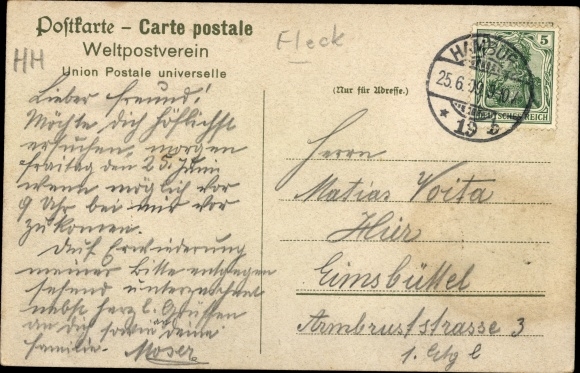 Postkarte – Carte postale
Weltpostverein
Union Postale universelle
HH
Fleck
(Nur für Adresse.)
HAMBURG
25.6.09
* 19 b
5
DEUTSCHES REICH
Lieber Freund!
Möchte dich höflichst
ersuchen, morgen
Freitag den 25. Juni
wenn möglich vor
9 Uhr bei mir vor
zu komen.
Auf Erwiederung
meiner Bitte entgegen
sehend unterzeichnet
nebst herzl. Grüssen
an dich sowie deine
Familie. Moser
Herrn
Matias Voita
Hier
Eimsbüttel
Armbruststrasse 3
1. Etg l